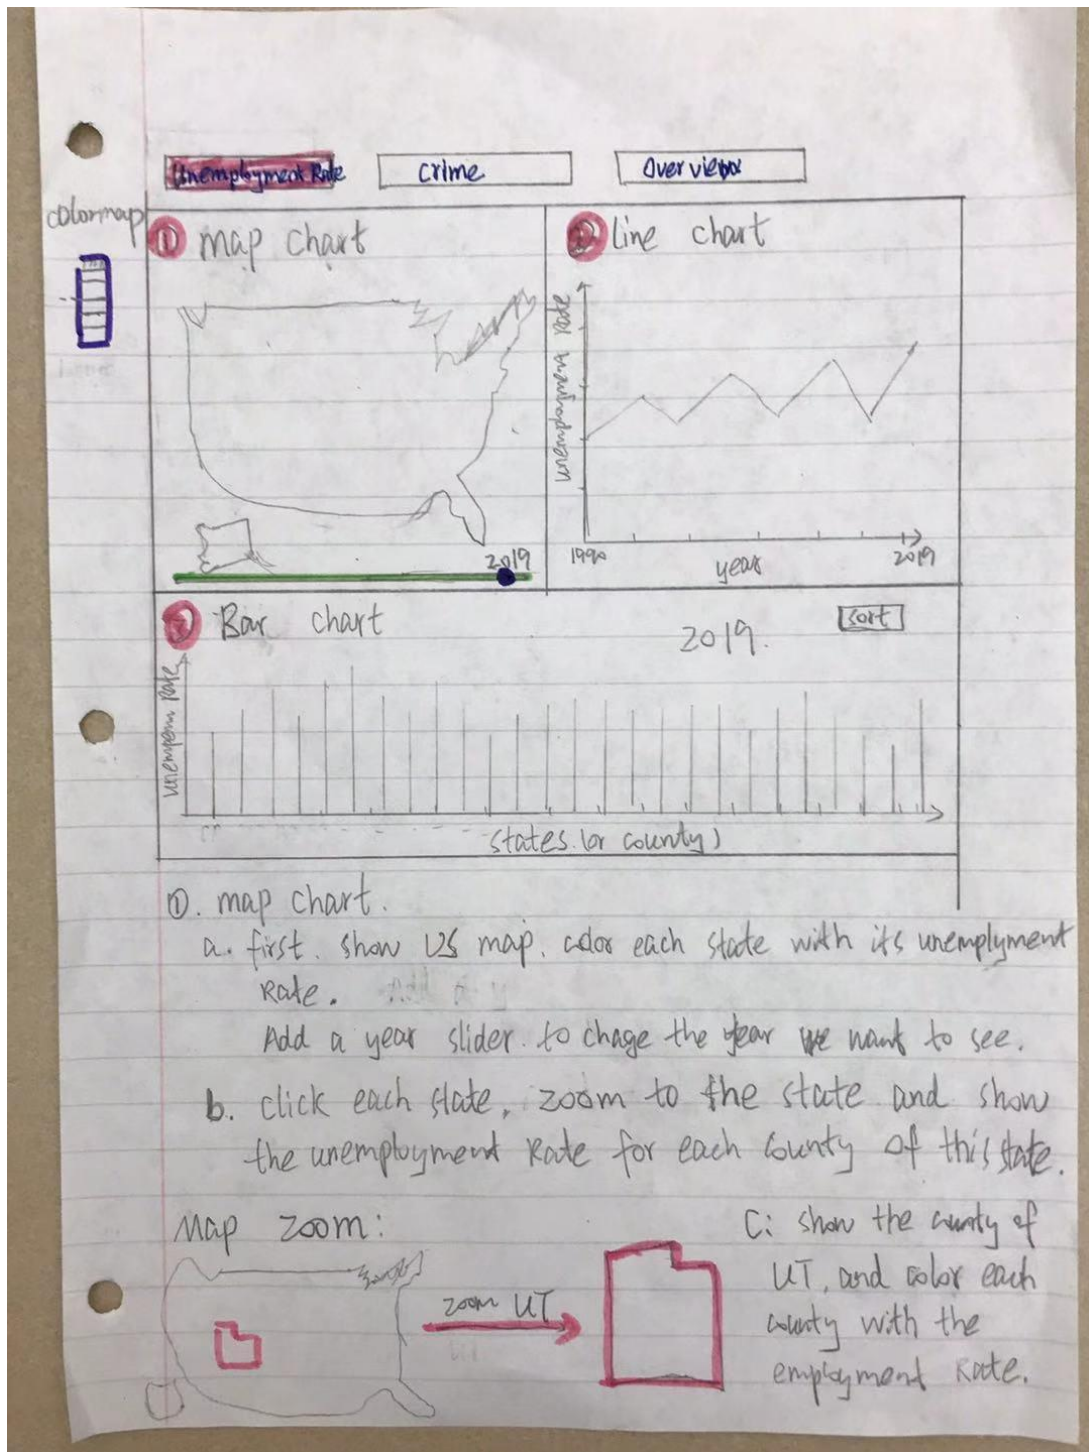 Unemployment Rate
Crime
Overview
colormap
① map chart
② line chart
Unemployment Rate
2019
1990
year
2019
③ Bar chart
2019.
sort
Unemploym Rate
states (or county)
①. map chart.
a. first. show US map. color each state with its unemplyment
Rate.
Add a year slider. to chage the year we want to see.
b. click each state, zoom to the state and show
the unemployment Rate for each county of this state.
Map zoom:
zoom UT
C: show the county of
UT, and color each
county with the
employment Rate.